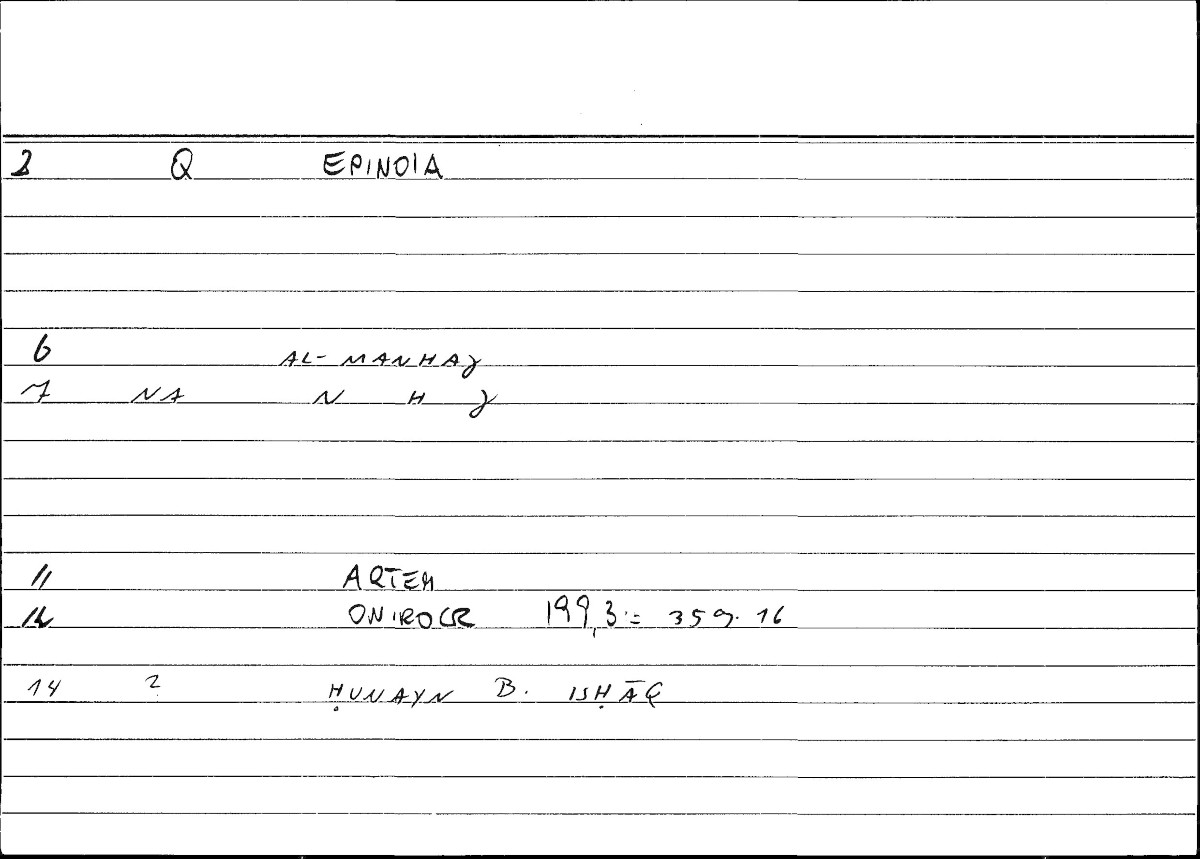 2 Q EPINOIA
6 AL-MANHAJ
7 NA N H J
11 ARTEM
12 ONIROCR 199,3 = 359.16
14 2 ḤUNAYN B. ISḤĀQ